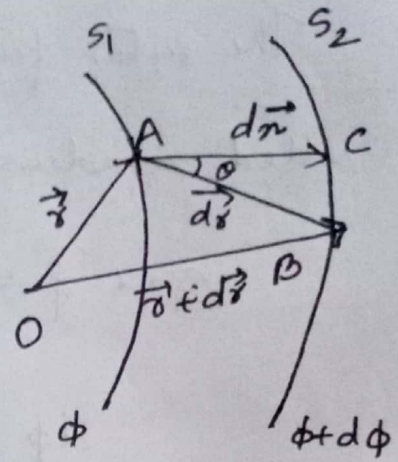 S₁
S₂
A
dn⃗
C
θ
r⃗
dr⃗
B
r⃗ + dr⃗
O
ϕ
ϕ + dϕ